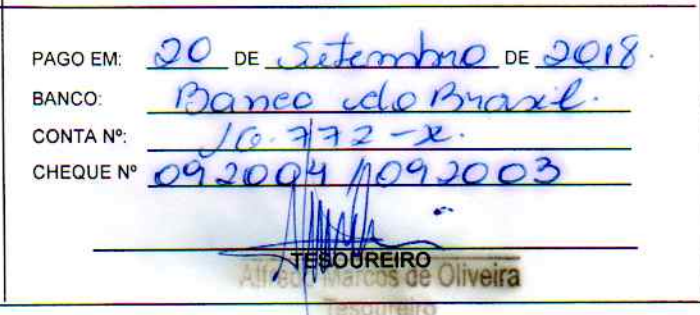 PAGO EM: 20 DE Setembro DE 2018.
BANCO: Banco do Brasil.
CONTA Nº: 10.772-x.
CHEQUE Nº 092004 / 092003
TESOUREIRO
Alfredo Marcos de Oliveira
Tesoureiro